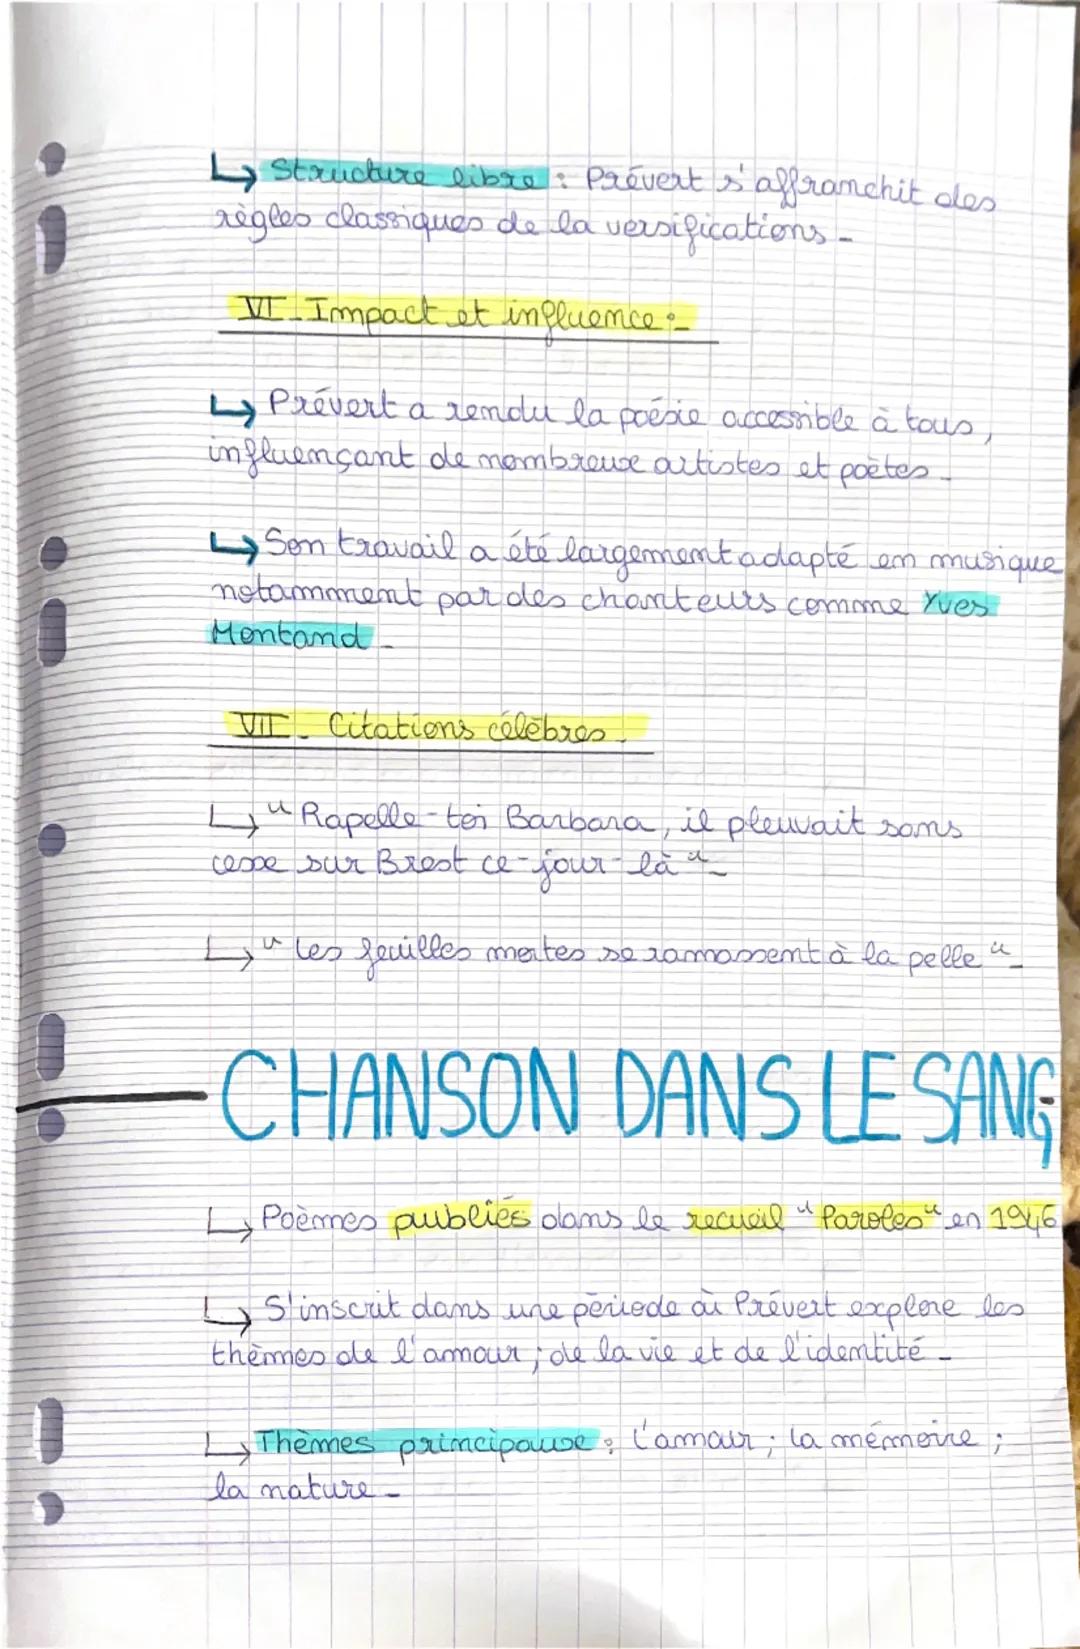 ↳ Structure libre : Prévert s'affranchit des
règles classiques de la versifications -
VI - Impact et influence :-
↳ Prévert a rendu la poésie accessible à tous,
influençant de nombreux artistes et poètes -
↳ Son travail a été largement adapté en musique
notamment par des chanteurs comme Yves
Montand -
VII - Citations célèbres -
↳ " Rapelle-toi Barbara, il pleuvait sans
cesse sur Brest ce-jour-là " -
↳ " Les feuilles mortes se ramassent à la pelle " -
CHANSON DANS LE SANG
↳ Poèmes publiés dans le recueil " Paroles " en 1946
↳ S'inscrit dans une période où Prévert explore les
thèmes de l'amour ; de la vie et de l'identité -
↳ Thèmes principaux : L'amour ; la mémoire ;
la nature -